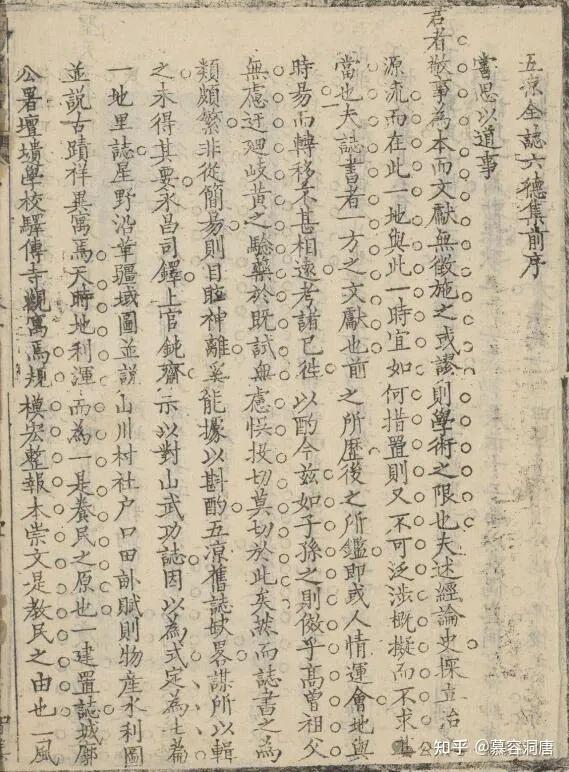 五涼全誌六德集前序
嘗思以道事
君者敬事為本而文獻無徵施之或謬則學術之限也夫述經論史探立治
源流而在此一地與此一時宜如何措置則又不可泛涉概擬而不求其
當也夫誌書者一方之文獻也前之所歷後之所鑑即或人情運會地與
時易而轉移不甚相遠考諸已徃以酌今茲如子孫之則倣乎髙曽祖父
無慮迂廻岐黄之驗藥於既試無慮悞投切莫切於此矣㢤而誌書之為
類頗繁非從簡易則目眩神離奚能據以斟酌五凉舊誌缺畧謀所以輯
之未得其要永昌司鐸上官鈍齋示以對山武功誌因以為式定為七篇
一地里誌星野沿革疆域圖並説山川村社户口田畆賦則物産水利圖
並説古蹟祥異寓焉天時地利運而為一是養民之原也一建置誌城廓
公署壇壝學校驛傳寺觀寓焉規模宏整報本崇文是教民之由也一風
知乎 @慕容洞唐